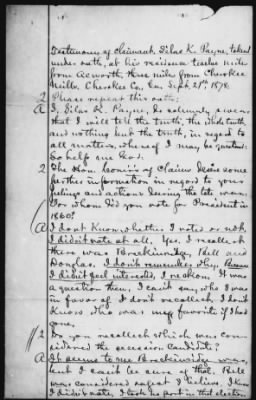 Testimony of claimant Silas K. Payne, taken
under oath, at his residence twelve miles
from Acworth, three miles from Cherokee
Mills. Cherokee Co, Ga. Sept. 21st 1878.
Q Please repeat this oath;
A I, Silas K. Payne, do solemnly swear
that I will tell the truth, the whole truth
and nothing but the truth, in regard to
all matters, whereof I may be questioned:
So help me God.
Q The Hon. Comrs of Claims desire some
further information in regard to your
feelings and actions during the late war.
For whom did you vote for President in
1860?
A I dont know whether I voted or not.
I didn't vote at all. Yes. I recollect
there was Breckinridge, Bell and
Douglas. I don't remember why
I didn't feel interested, I reckon. It was
a question then, I can't say, who I was
in favor of. I don't recollect, I don't
know who was my favorite if I had
gone.
Q Do you recollect which was con-
sidered the secession candidate?
A It seems to me Breckinridge was,
but I can't be sure of that. Bell
was considered safest I believe. I know
I didn't vote, I took no part in that election